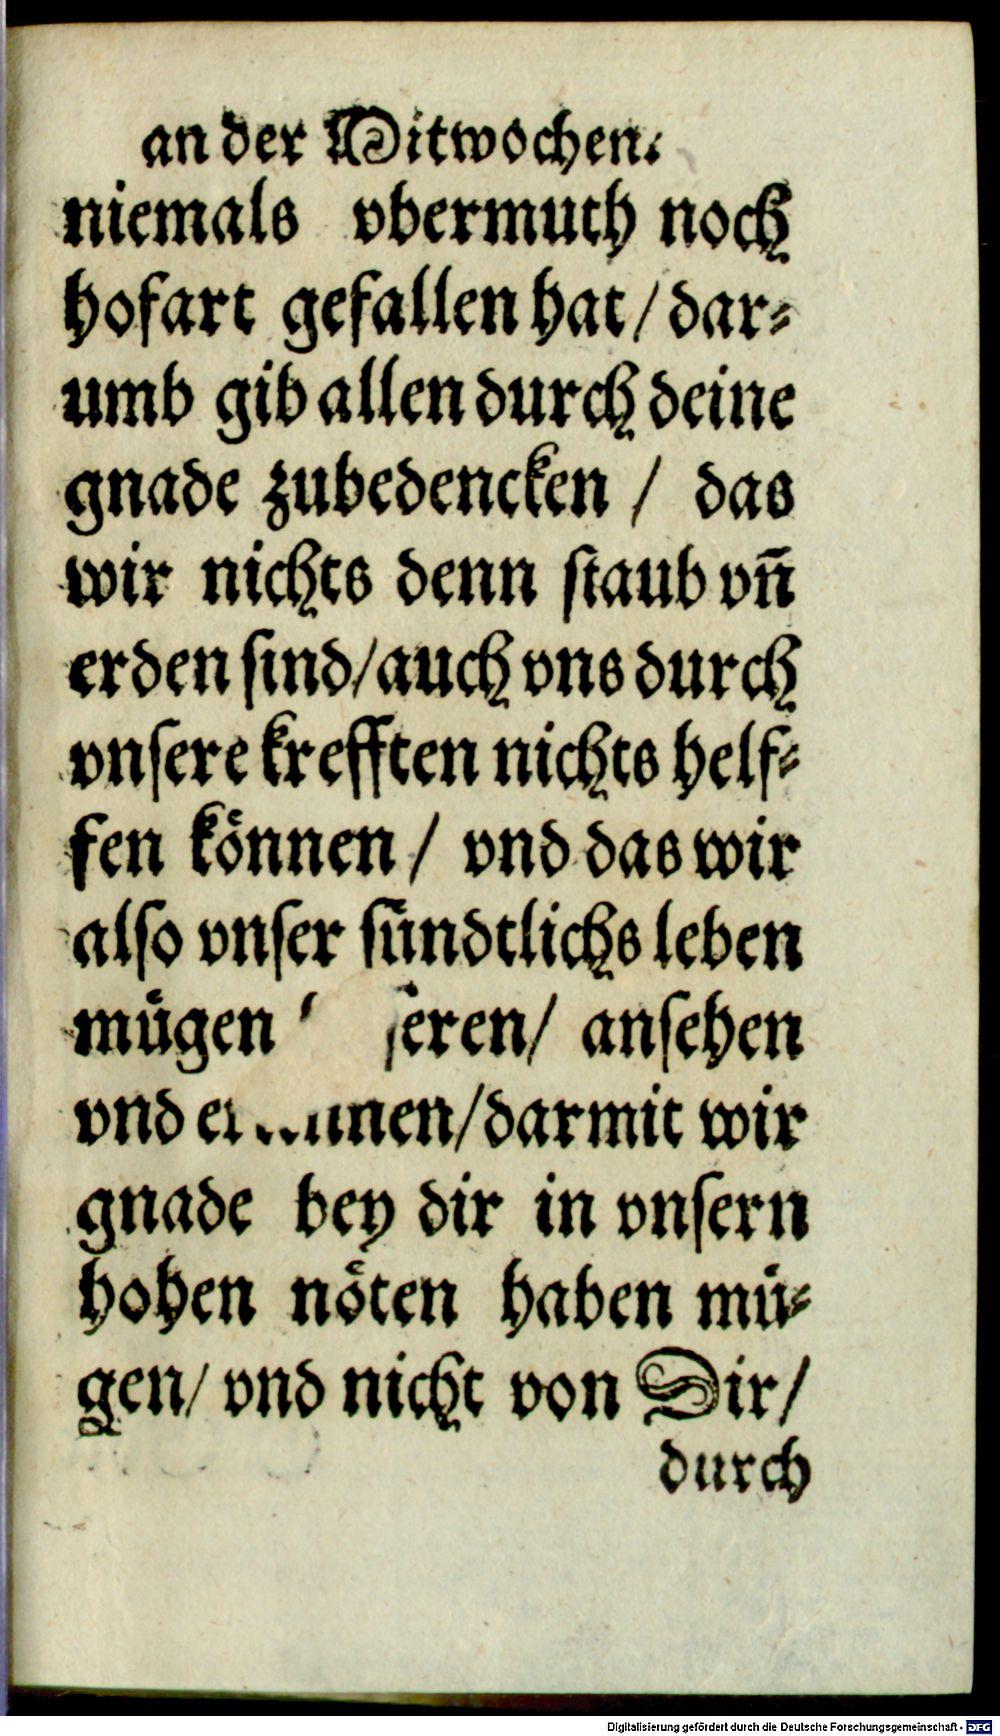 an der Mitwochen.
niemals vbermuth noch
hofart gefallen hat / dar⸗
umb gib allen durch deine
gnade zubedencken / das
wir nichts denn staub vn̄
erden sind / auch vns durch
vnsere krefften nichts helf⸗
fen können / vnd das wir
also vnser sündtlichs leben
mügen / ansehen
vnd / darmit wir
gnade bey dir in vnsern
hohen nöten haben mü⸗
gen / vnd nicht von Dir /
durch
Digitalisierung gefördert durch die Deutsche Forschungsgemeinschaft - DFG